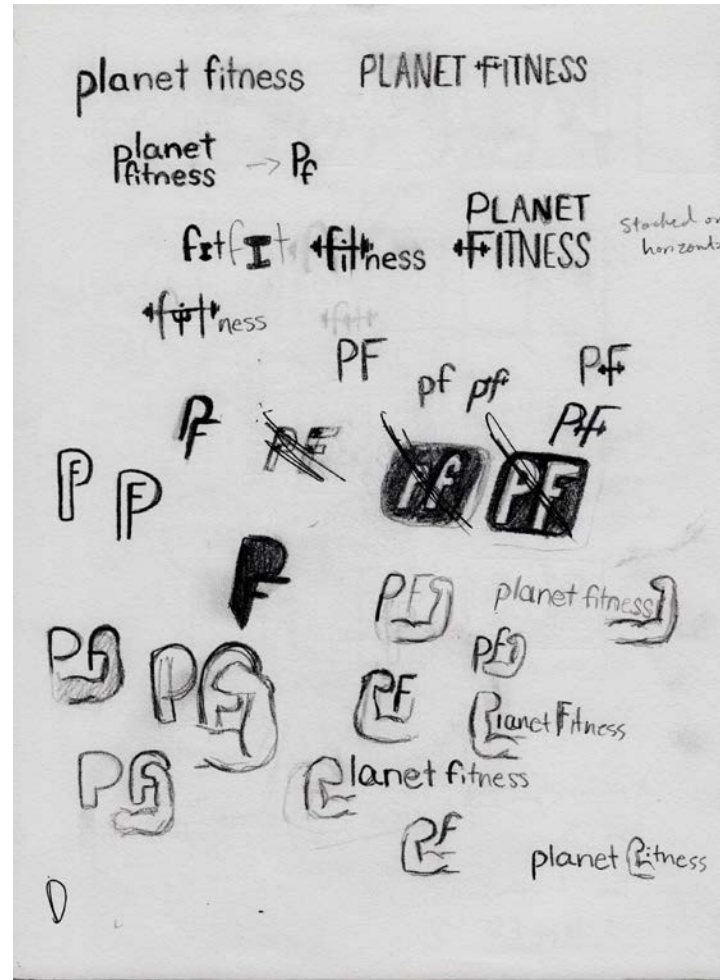 planet fitness PLANET FITNESS
planet
fitness → Pf
PLANET
FITNESS
Stacked or
horizonta
fIt fIt fitness
fitness
PF
pf pf
PF
PF
PF
PF
PF
PF
PF
PF
PF
PF
PF planet fitness
PF
PF
PF
PF
Planet Fitness
PF
planet fitness
PF
planet fitness